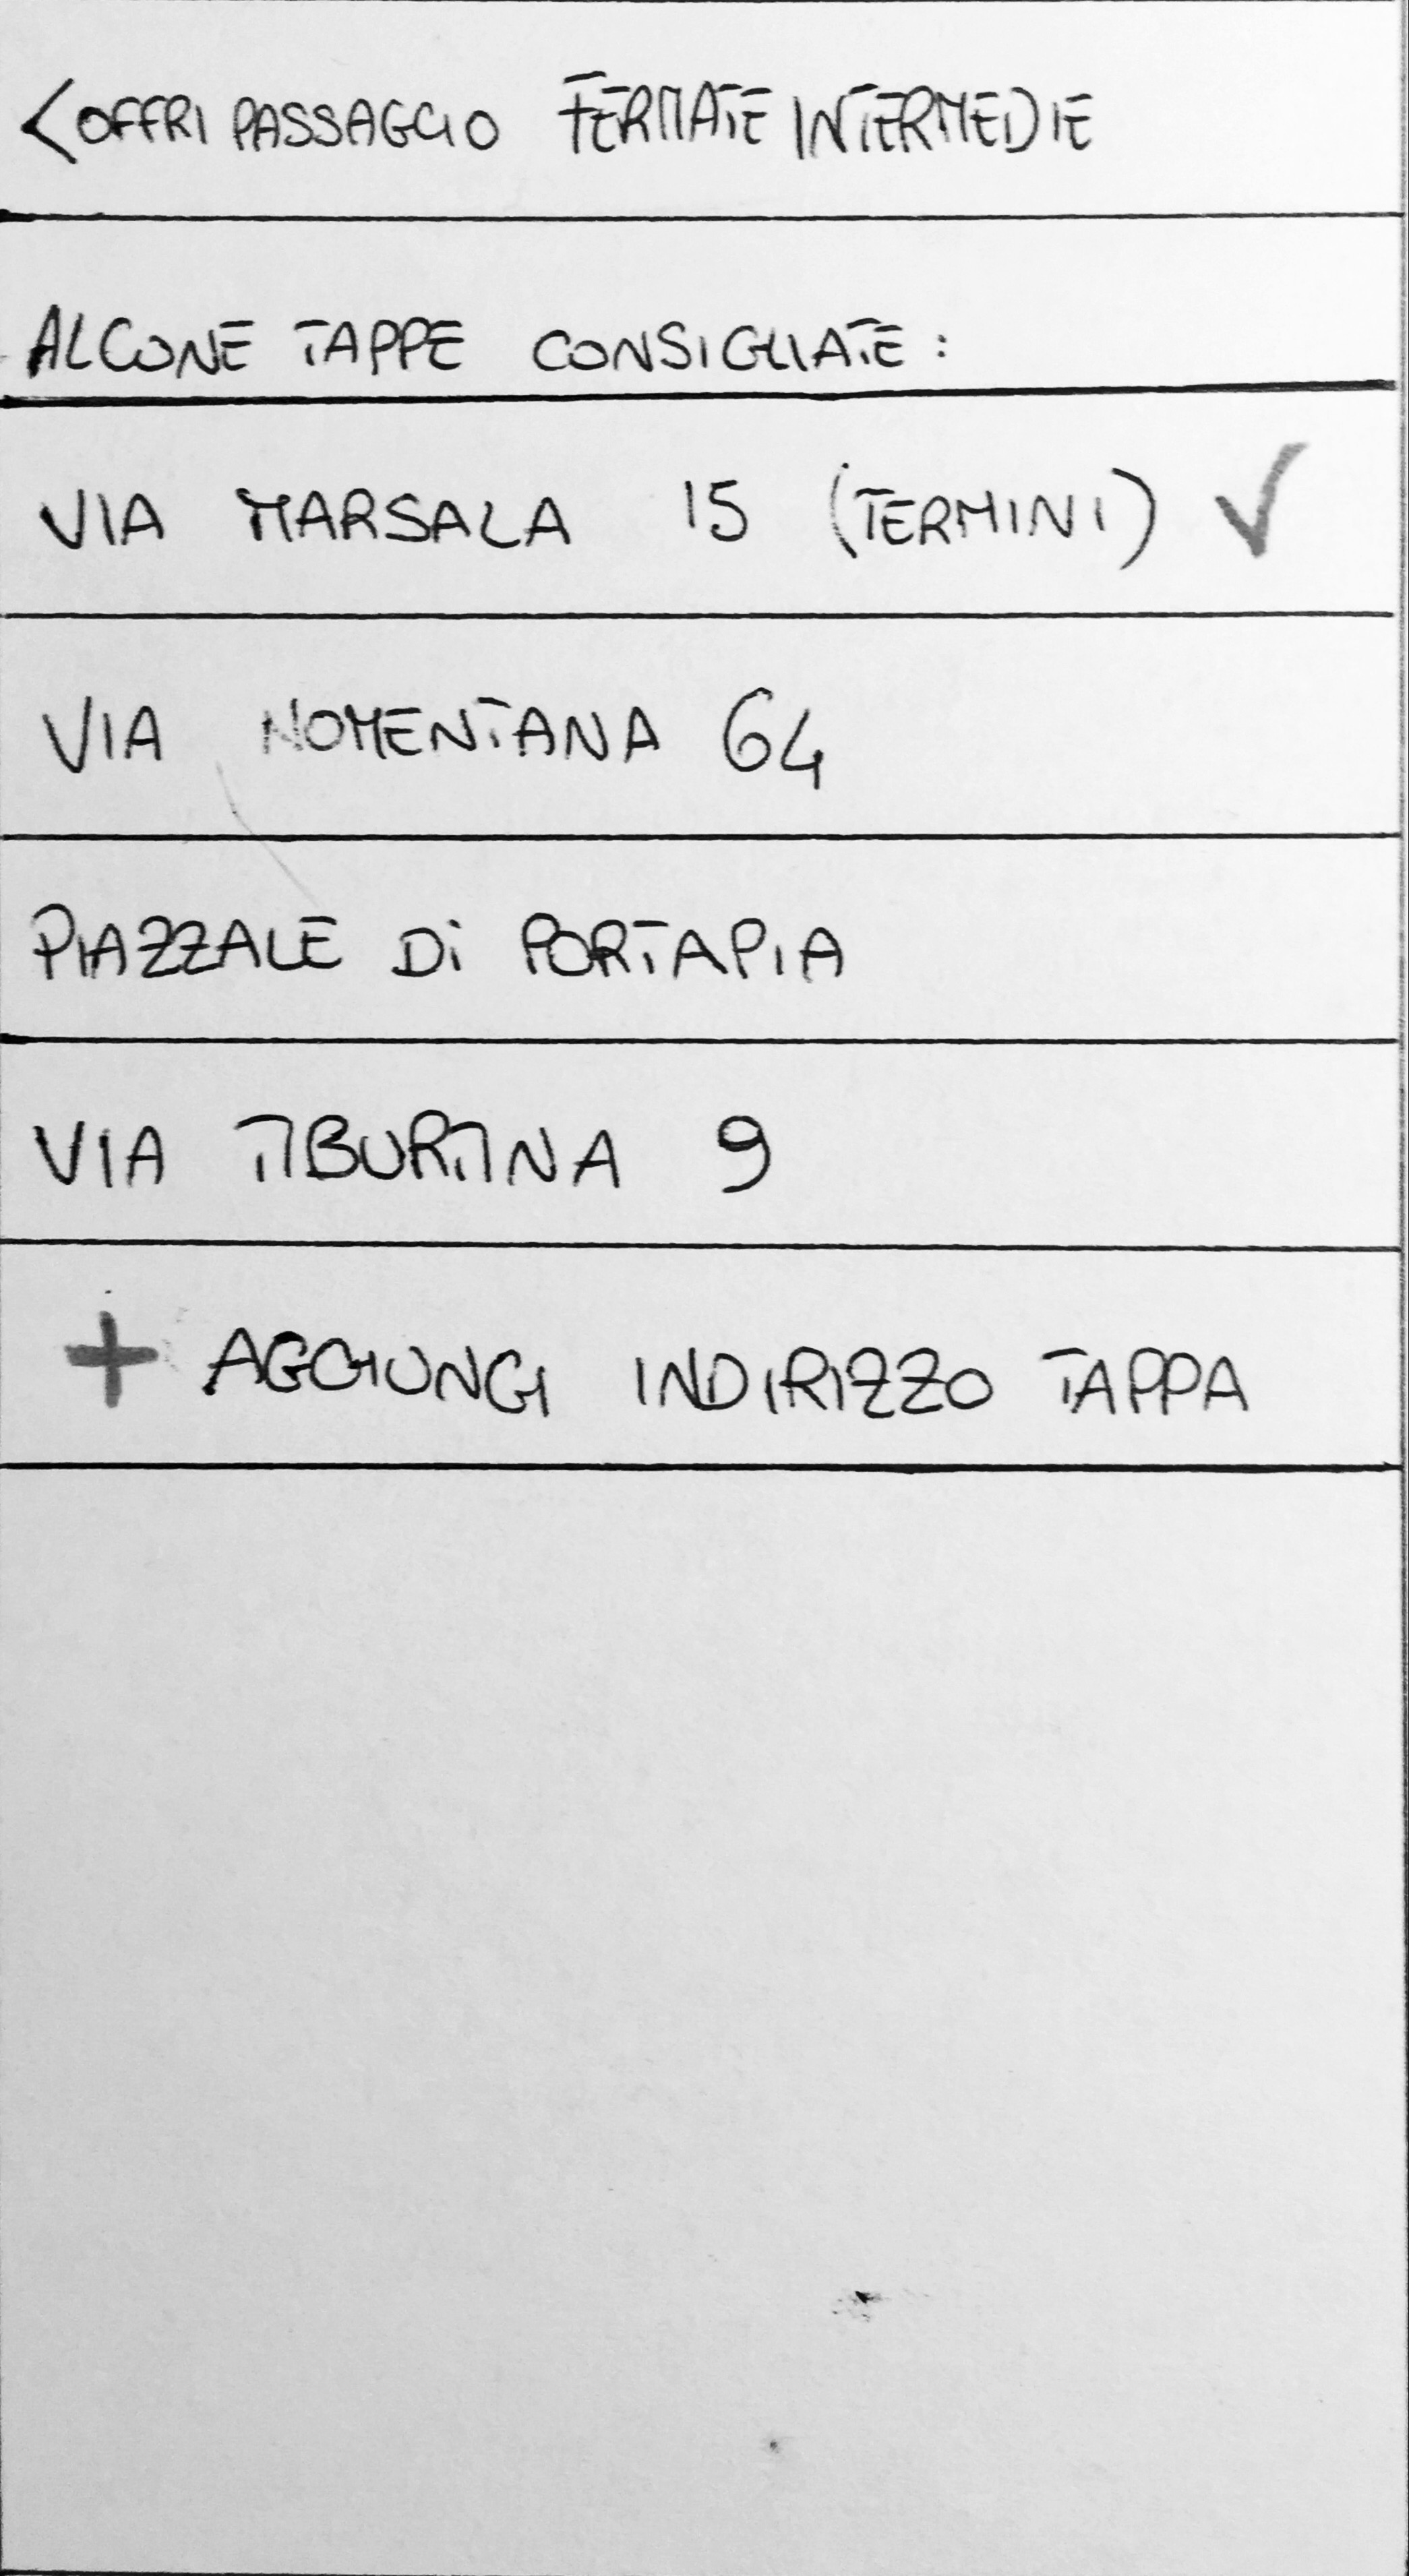 < OFFRI PASSAGGIO FERMATE INTERMEDIE
ALCUNE TAPPE CONSIGLIATE:
VIA MARSALA 15 (TERMINI) ✓
VIA NOMENTANA 64
PIAZZALE Di PORTAPIA
VIA TIBURTINA 9
+ AGGIUNGI INDIRIZZO TAPPA